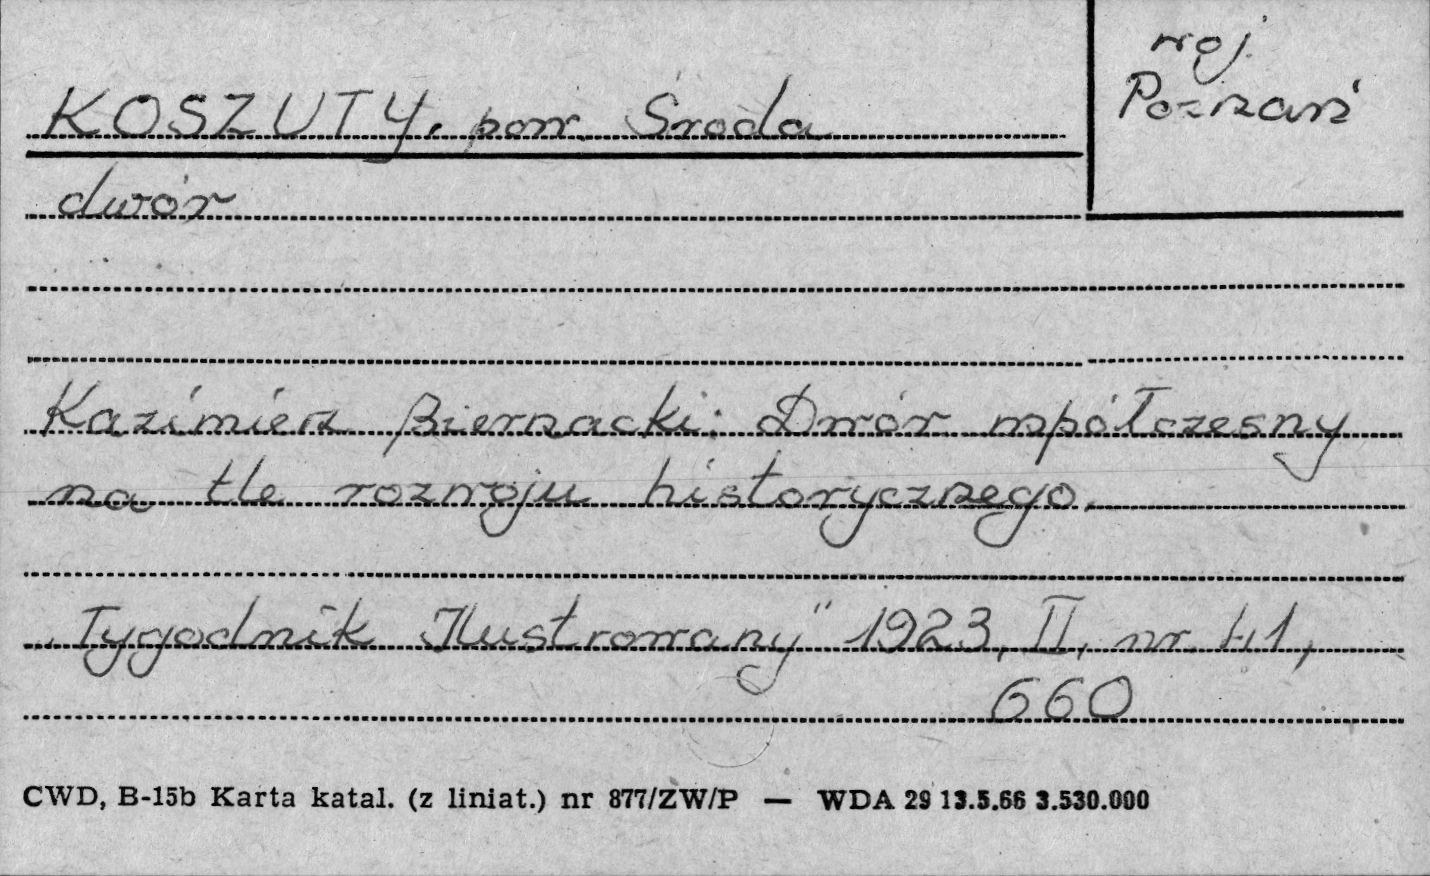 woj.
Poznań
KOSZUTY, pow. Środa
dwór
Kazimierz Biernacki: Dwór współczesny
na tle rozwoju historycznego.
„Tygodnik Ilustrowany” 1923, II, nr. 41,
660
CWD, B-15b Karta katal. (z liniat.) nr 877/ZW/P — WDA 29 13.5.66 3.530.000